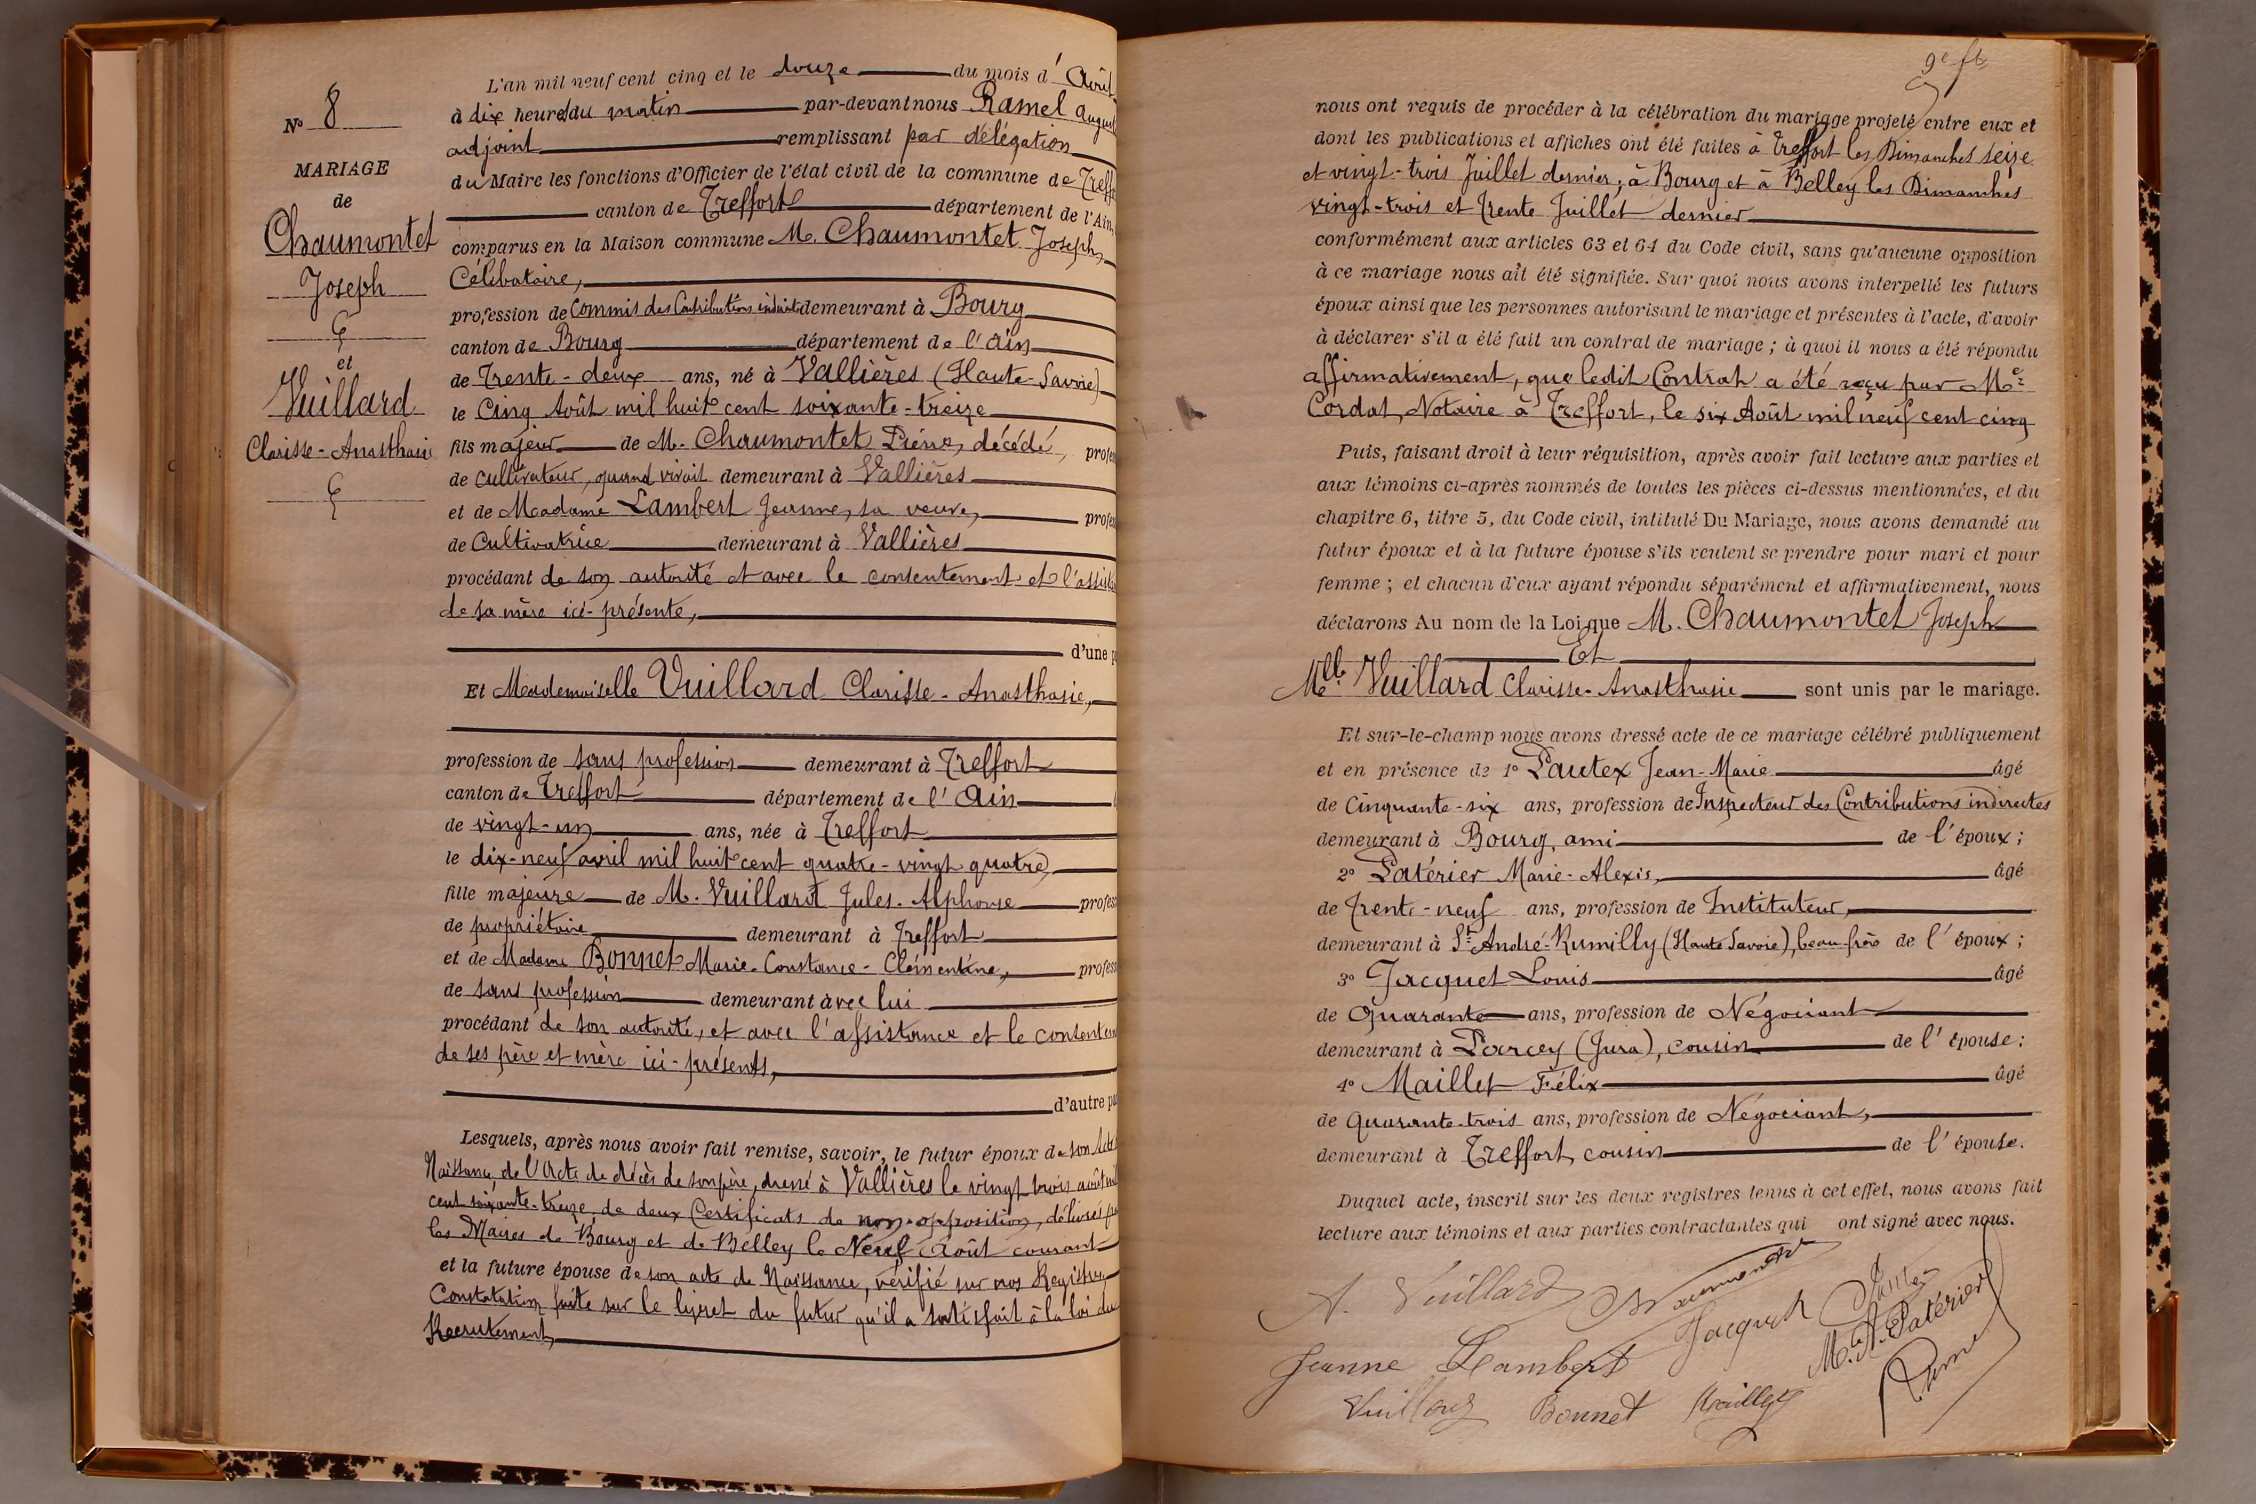 N° 8
MARIAGE
de
Chaumontet
Joseph
et
Vuillard
Clarisse-Anasthasie
L'an mil neuf cent cinq et le douze du mois d'Août
à dix heures du matin par-devant nous Ramel August
adjoint remplissant par délégation
du Maire les fonctions d'Officier de l'état civil de la commune de Treffo
canton de Treffort département de l'Ain,
comparus en la Maison commune M. Chaumontet Joseph,
Célibataire,
profession de Commis des Contributions indirectes demeurant à Bourg
canton de Bourg département de l'Ain
de Trente-deux ans, né à Vallières (Haute-Savoie)
le Cinq Août mil huit cent soixante-treize
fils majeur de M. Chaumontet Pierre, décédé, profes
de cultivateur, quand vivait demeurant à Vallières
et de Madame Lambert Jeanne, sa veuve, profes
de Cultivatrice demeurant à Vallières
procédant de son autorité et avec le consentement et l'assista
de sa mère ici-présente,
d'une p
Et Mademoiselle Vuillard Clarisse-Anasthasie,
profession de sans profession demeurant à Treffort
canton de Treffort département de l'Ain
de vingt-un ans, née à Treffort
le dix-neuf avril mil huit cent quatre-vingt quatre,
fille majeure de M. Vuillard Jules-Alphonse profess
de propriétaire demeurant à Treffort
et de Madame Bonnet Marie-Constance-Clémentine, profess
de sans profession demeurant avec lui
procédant de son autorité, et avec l'assistance et le consentem
de ses père et mère ici-présents,
d'autre pa
Lesquels, après nous avoir fait remise, savoir, le futur époux de son Acte
Naissance, de l'Acte de décès de son père, dressé à Vallières le vingt trois août mil
cent soixante-treize, de deux Certificats de non-opposition, délivrés par
les Maires de Bourg et de Belley le Neuf Août courant
et la future épouse de son acte de Naissance, vérifié sur nos Registres,
Constatation faite sur le livret du futur qu'il a satisfait à la loi du
Recrutement,
9e ft
nous ont requis de procéder à la célébration du mariage projeté entre eux et
dont les publications et affiches ont été faites à Treffort les Dimanches seize
et vingt-trois Juillet dernier, à Bourg et à Belley les Dimanches
vingt-trois et Trente Juillet dernier
conformément aux articles 63 et 64 du Code civil, sans qu'aucune opposition
à ce mariage nous ait été signifiée. Sur quoi nous avons interpellé les futurs
époux ainsi que les personnes autorisant le mariage et présentes à l'acte, d'avoir
à déclarer s'il a été fait un contrat de mariage ; à quoi il nous a été répondu
affirmativement, que ledit Contrat a été reçu par Me
Cordat, Notaire à Treffort, le six Août mil neuf cent cinq
Puis, faisant droit à leur réquisition, après avoir fait lecture aux parties et
aux témoins ci-après nommés de toutes les pièces ci-dessus mentionnées, et du
chapitre 6, titre 5, du Code civil, intitulé Du Mariage, nous avons demandé au
futur époux et à la future épouse s'ils veulent se prendre pour mari et pour
femme ; et chacun d'eux ayant répondu séparément et affirmativement, nous
déclarons Au nom de la Loi que M. Chaumontet Joseph
Et
Mlle Vuillard Clarisse-Anasthasie sont unis par le mariage.
Et sur-le-champ nous avons dressé acte de ce mariage célébré publiquement
et en présence de 1° Pautex Jean-Marie âgé
de Cinquante-six ans, profession de Inspecteur des Contributions indirectes
demeurant à Bourg, ami de l'époux ;
2° Patérier Marie-Alexis, âgé
de Trente-neuf ans, profession de Instituteur,
demeurant à St André-Rumilly (Haute Savoie), beau-frère de l'époux ;
3° Jacquet Louis âgé
de Quarante ans, profession de Négociant
demeurant à Parcey (Jura), cousin de l'épouse ;
4° Maillet Félix âgé
de Quarante-trois ans, profession de Négociant,
demeurant à Treffort, cousin de l'épouse.
Duquel acte, inscrit sur les deux registres tenus à cet effet, nous avons fait
lecture aux témoins et aux parties contractantes qui ont signé avec nous.
A. Vuillard Chaumontet Pautex
Jacquet M. A. Patérier
Jeanne Lambert Ramel
Vuillard Bonnet Maillet